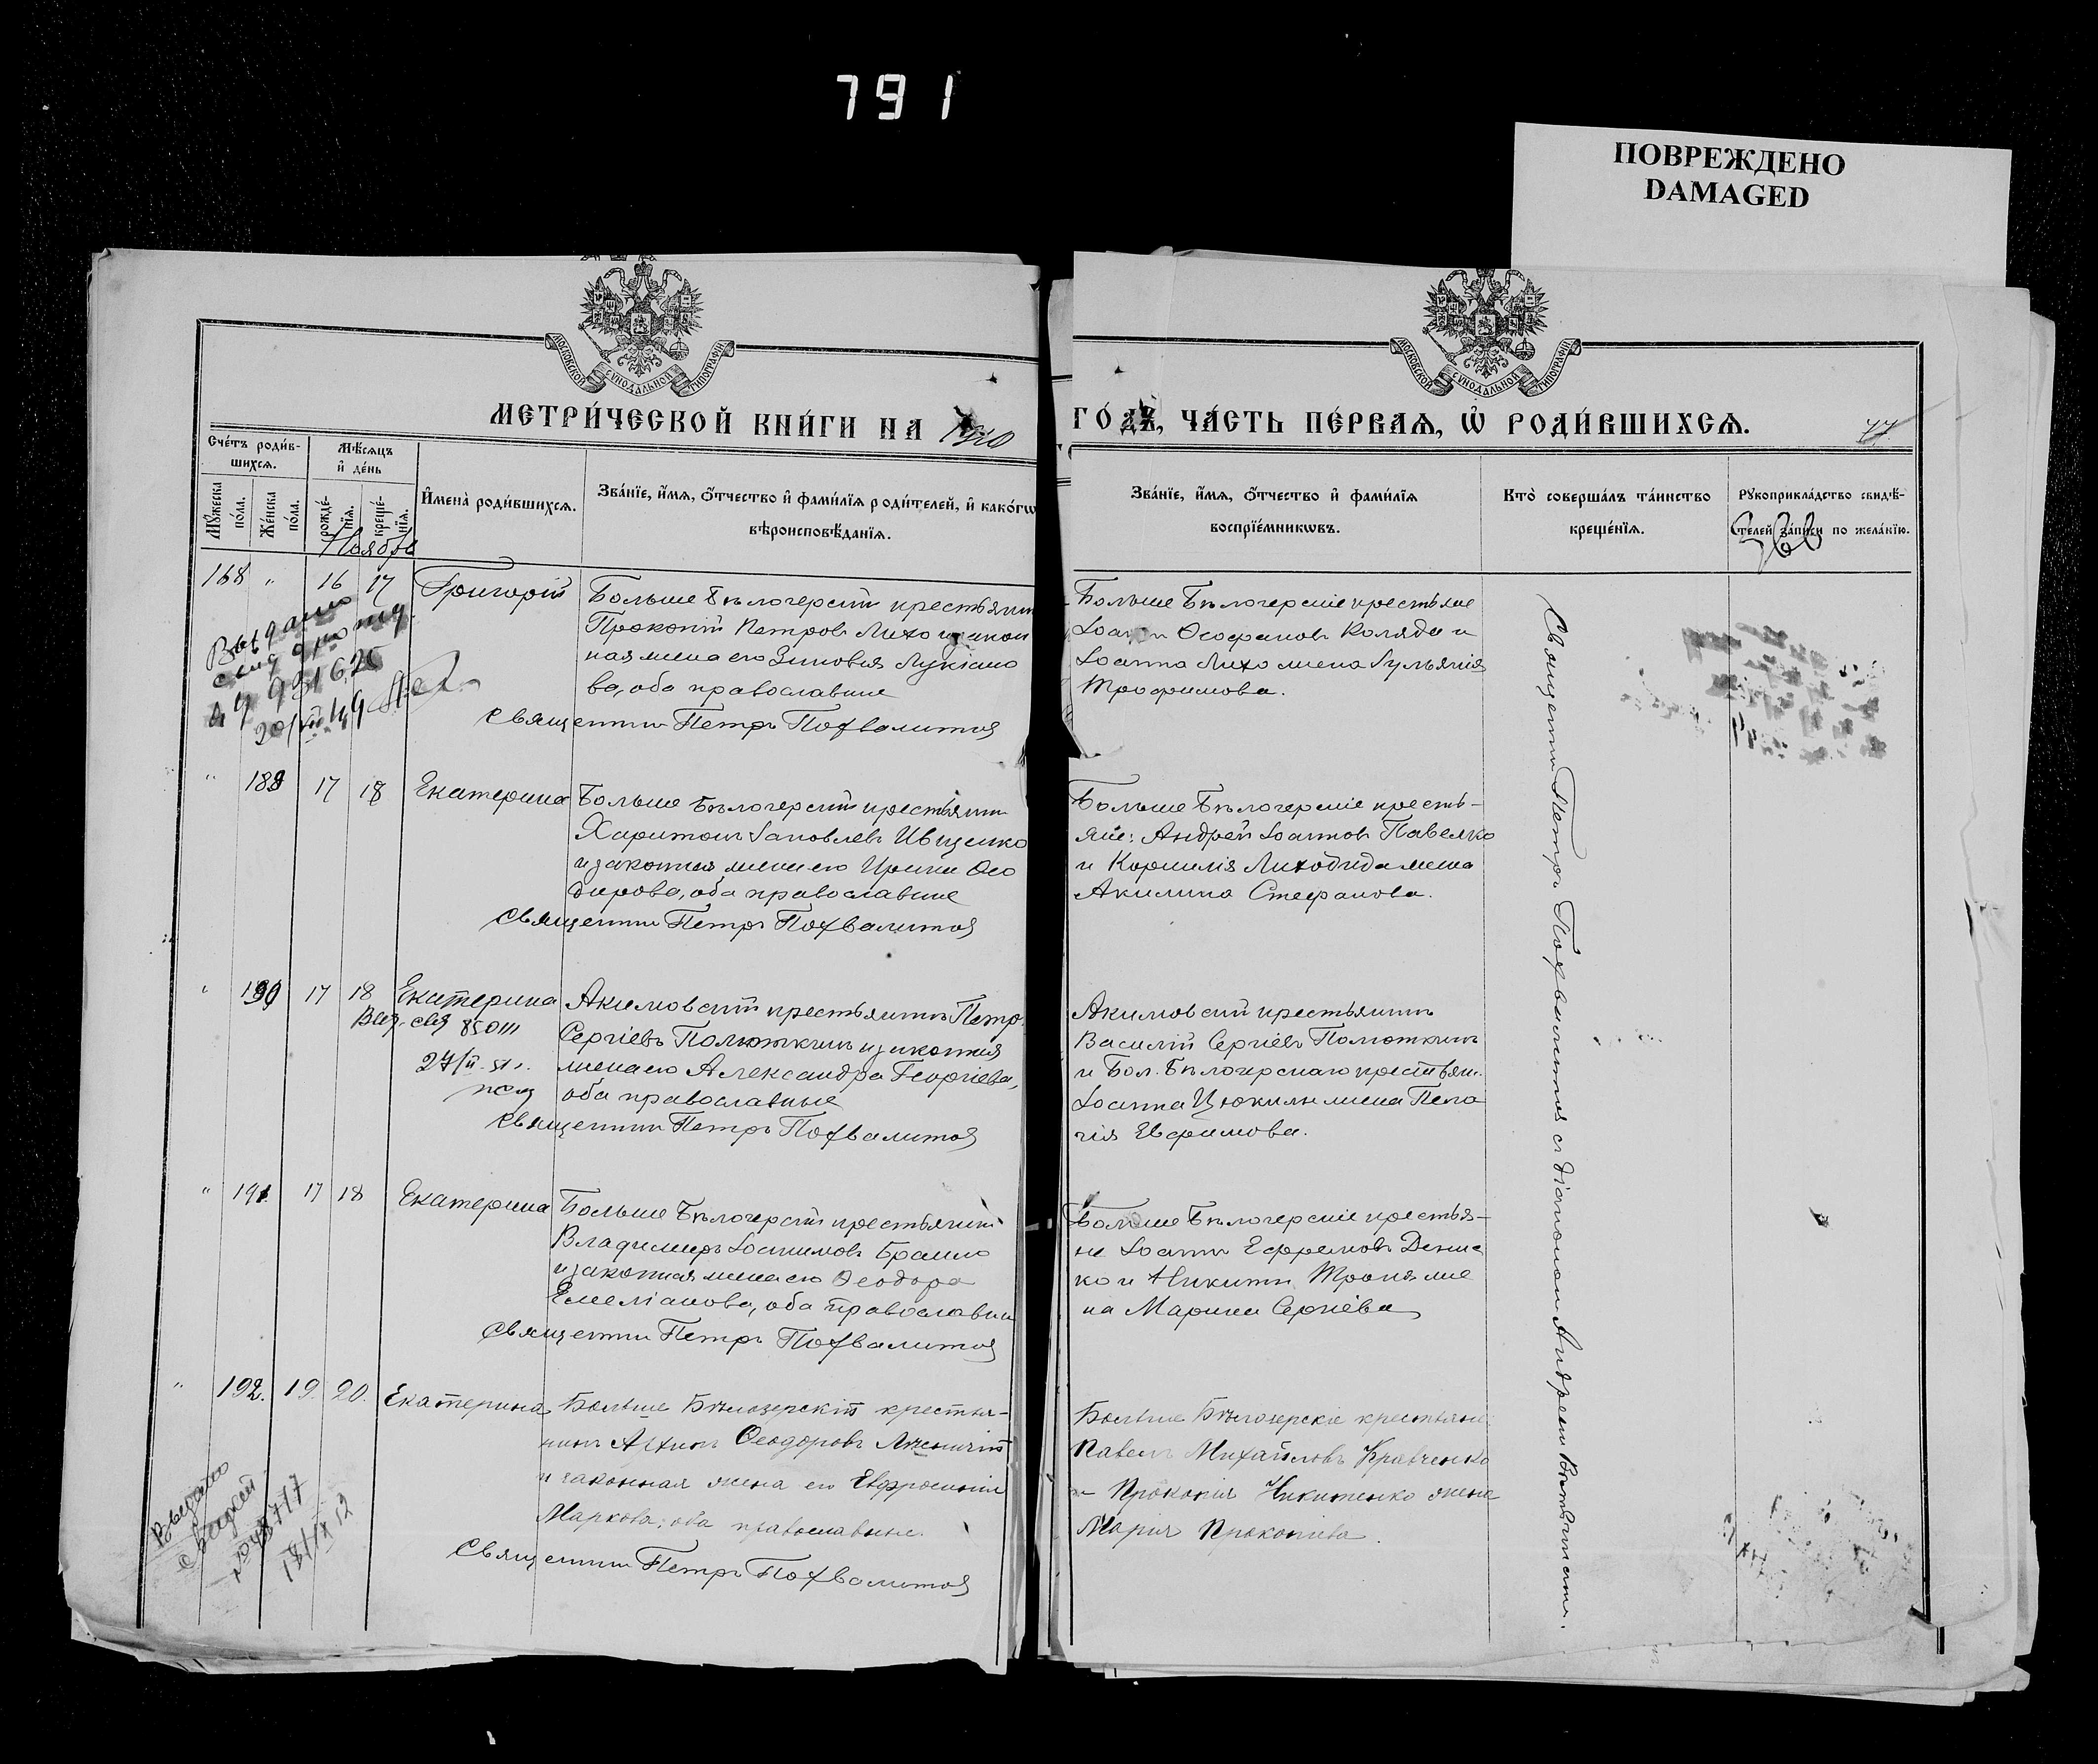 791
ПОВРЕЖДЕНО
DAMAGED
МОСКОВСКОЙ СѴНОДАЛЬНОЙ ТИПОГРАФІИ
МОСКОВСКОЙ СѴНОДАЛЬНОЙ ТИПОГРАФІИ
МЕТРИ́ЧЕСКОЙ КНИ́ГИ НА 1910
ГО́ДЪ, ЧА́СТЬ ПЕ́РВАѦ, Ѡ҆ РОДИ́ВШИХСѦ.
77
Сче́тъ роди́в-
шихсѧ.
Мꙋ́жеска по́ла.
Же́нска по́ла.
Мѣ́сѧцъ
и҆ де́нь
рожде́-
нїѧ.
креще́-
нїѧ.
И҆мена̀ роди́вшихсѧ.
Зва́нїе, и҆́мѧ, ѻ҆́тчество и҆ фами́лїѧ роди́телей, и҆ како́гѡ
вѣроисповѣ́данїѧ.
Зва́нїе, и҆́мѧ, ѻ҆́тчество и҆ фами́лїѧ
воспрїе́мникѡвъ.
Кто̀ соверша́лъ та́инство
креще́нїѧ.
Рꙋкоприкла́дство свидѣ́-
телей за́писи по жела́нїю.
Ноябрь
168 " 16 17 Григорій
Больше Бѣлозерскій крестьянинъ
Прокопій Петровъ Лихо и закон
ная жена его Зиновія Лукіано
ва, оба православные
Священникъ Петръ Похвалитовъ
Больше Бѣлозерскіе крестьяне
Іоаннъ Ѳеофановъ Коляда и
Іоанна Лихо жена Гульянія
Трофимова.
Выдано
20/VII 44
" 189 17 18 Екатерина
Больше Бѣлозерскій крестьянинъ
Харитонъ Іаковлевъ Ивценко
и законная жена его Ирина Ѳео
дорова, оба православные
Священникъ Петръ Похвалитовъ
Больше Бѣлозерскіе кресть-
яне: Андрей Іоанновъ Павелко
и Корнилія Лиходида жена
Акилина Стефанова.
" 190 17 18 Екатерина
Акимовскій крестьянинъ Петръ
Сергіевъ Полюткинъ и законная
жена его Александра Георгіева,
оба православные
Священникъ Петръ Похвалитовъ
Акимовскій крестьянинъ
Василій Сергіевъ Полюткинъ
и Бол. Бѣлозерскаго крестьян.
Іоанна Цюкилы жена Пела
гія Евфимова.
" 191 17 18 Екатерина
Больше Бѣлозерскій крестьянинъ
Владимиръ Іоакимовъ Брашко
и законная жена его Ѳеодора
Емеліанова, оба православные
Священникъ Петръ Похвалитовъ
Больше Бѣлозерскіе крестья-
не Іоаннъ Ефремовъ Денис
ко и Никиты Трояна же
на Марина Сергіева
" 192. 19. 20. Екатерина
Больше Бѣлозерскій крестья-
нинъ Архипъ Ѳеодоровъ
и законная жена его Евфросинія
Маркова; оба православные.
Священникъ Петръ Похвалитовъ
Больше Бѣлозерскіе крестьяне:
Павелъ Михайловъ Кравченко
и Прокопія Никитенко жена
Марія Прокопіева.
Выдано
Священникъ Петръ Похвалитовъ съ діакономъ Андреемъ